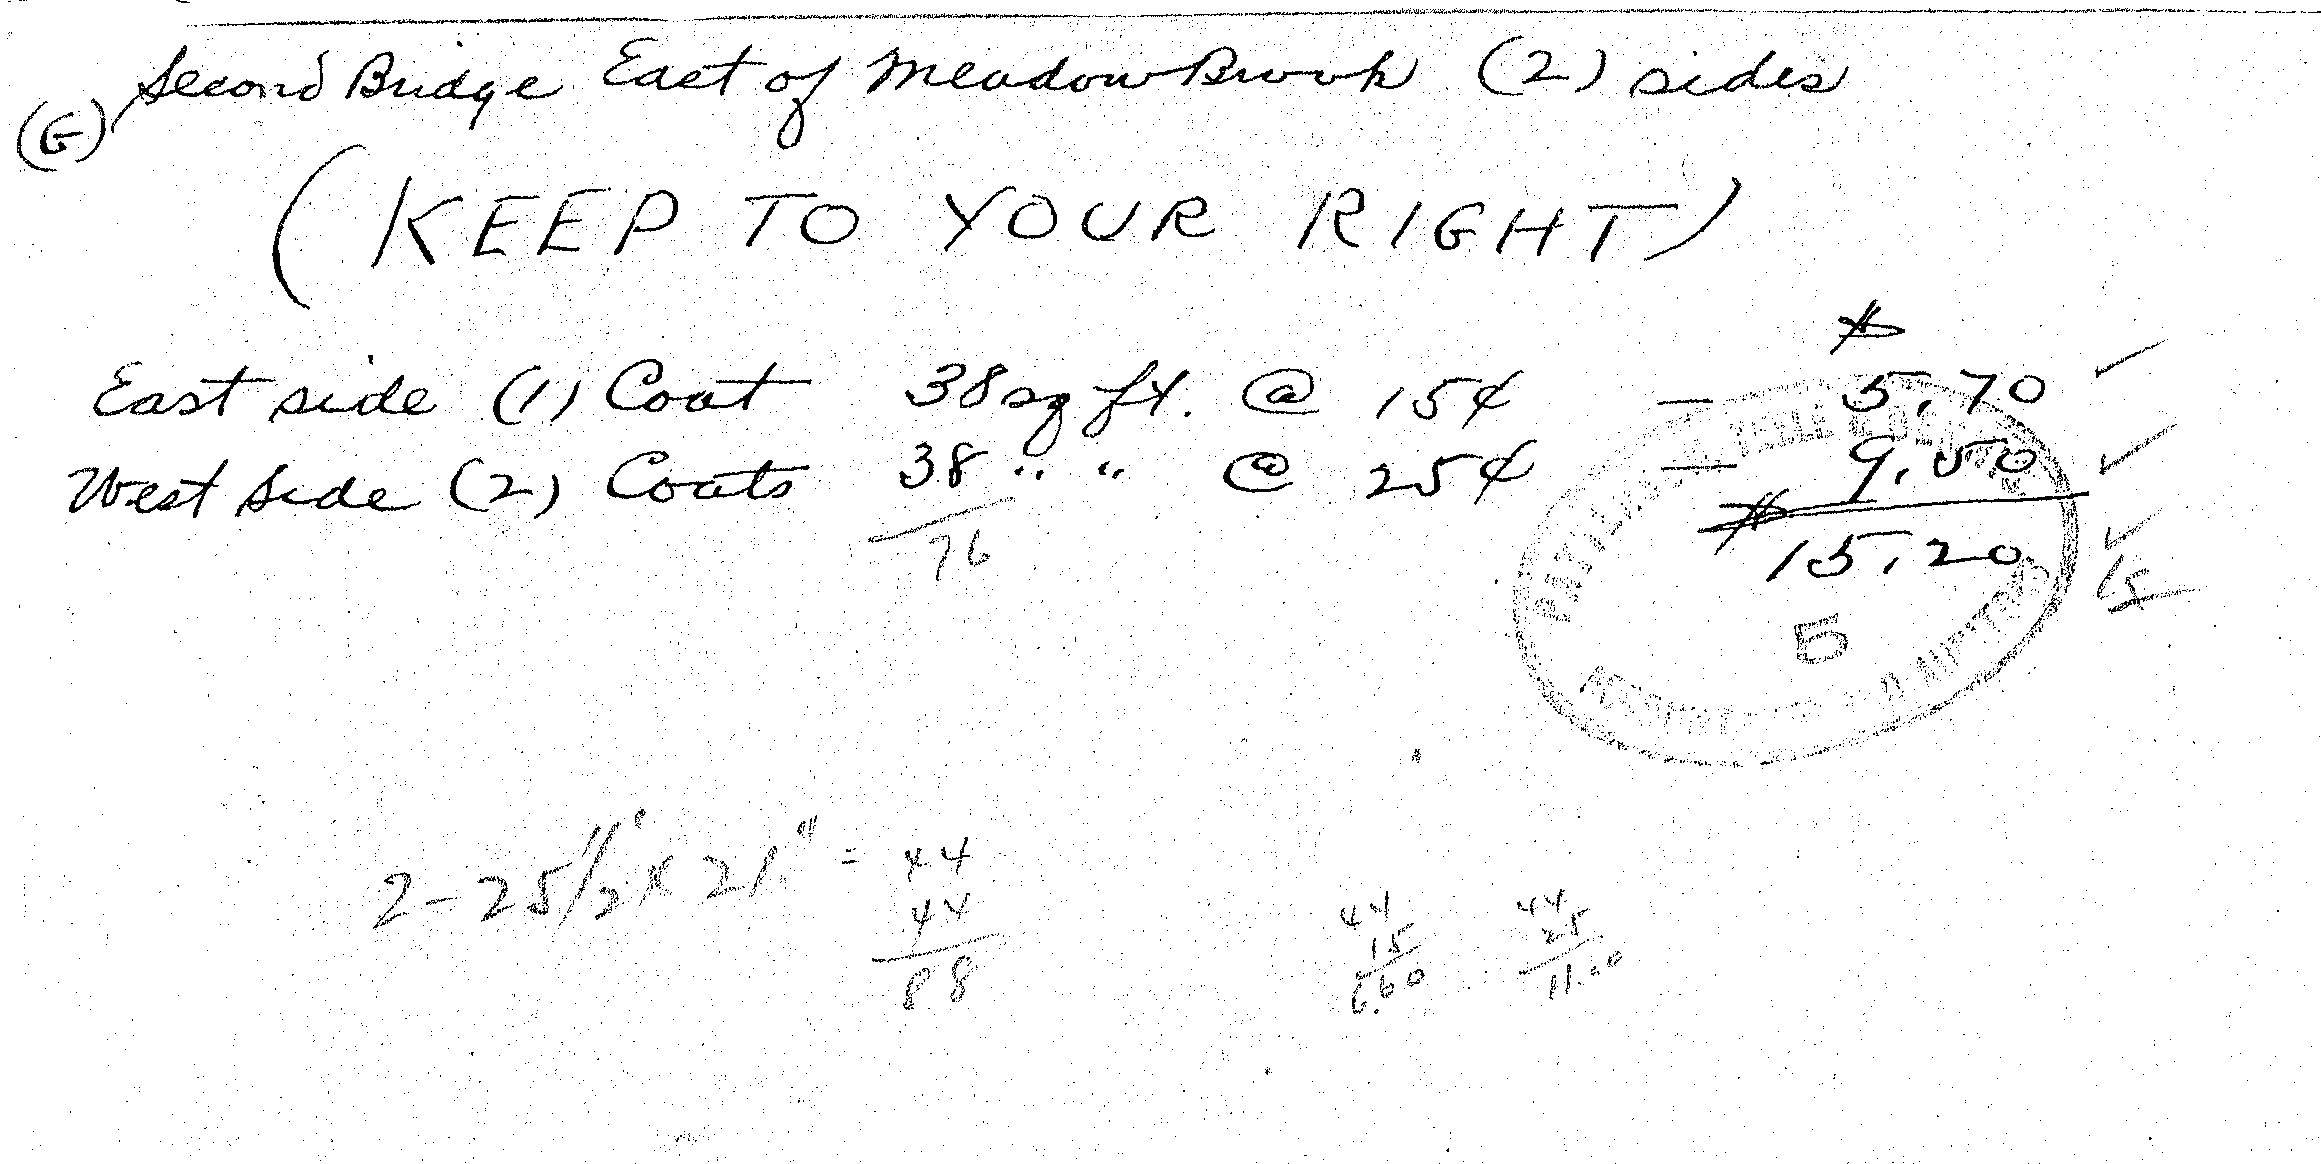 (G) Second Bridge East of Meadow Brook (2) sides
(KEEP TO YOUR RIGHT)
$
East side (1) Coat 38 sq ft. @ 15¢ — 5.70 ✓
West Side (2) Coats 38 " " @ 25¢ — 9.50 ✓
76
$ 15.20 ✓
5
2-25 1/2' x 21" = 44
44
88
44
15
6.60
44
25
11.00